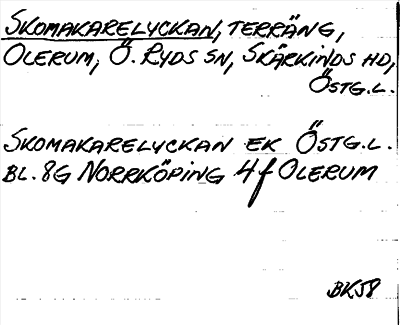 SKOMAKARELYCKAN, TERRÄNG,
OLERUM, Ö. RYDS SN, SKÄRKINDS HD,
ÖSTG.L.
SKOMAKARELYCKAN EK ÖSTG.L.
BL. 8G NORRKÖPING 4f OLERUM
BKJ8